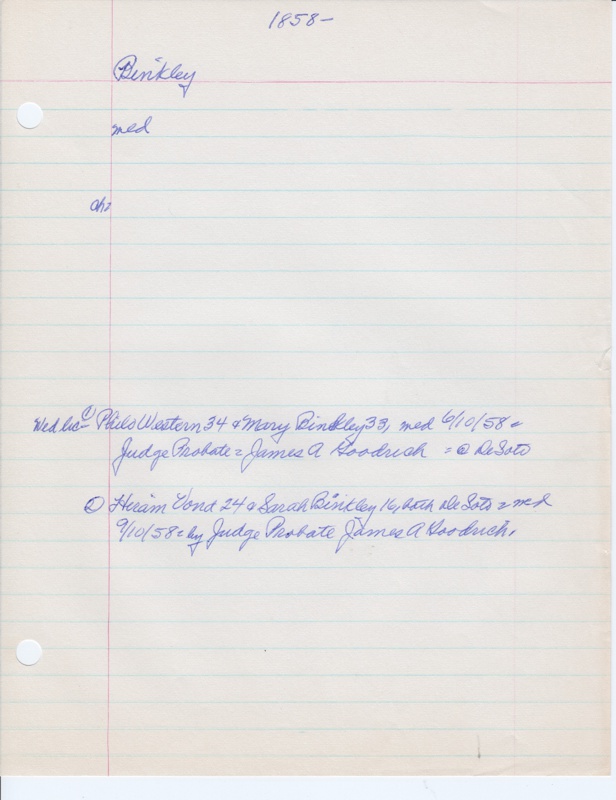 1858-
Binkley
med
ch=
Wed lic- Philo Western 34 & Mary Binkley 33, med 6/10/58=
Judge Probate = James A Goodrich = @ DeSoto
Hiram Vond 24 & Sarah Binkley 16, both DeSoto = med
9/10/58= by Judge Probate James A Goodrich.